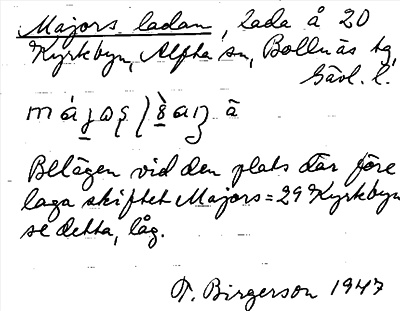 Majors ladan, lada å 20
Kyrkbyn, Alfta sn, Bollnäs tg,
Gävl. l.
Belägen vid den plats där före
laga skiftet Majors = 29 Kyrkbyn
se detta, låg.
T. Birgerson 1947